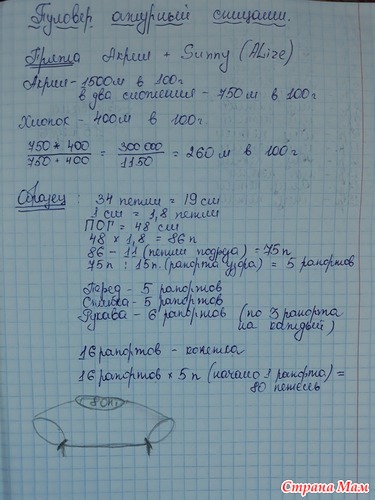 Пуловер ажурный спицами.
Пряжа Акрил + Sunny (ALize)
Акрил - 1500м в 100г
в два сложения - 750м в 100г
Хлопок - 400м в 100г.
750 * 400 / 750 + 400 = 300 000 / 1150 = 260м в 100г.
Образец: 34 петли = 19 см
1 см = 1,8 петли
ПОГ = 48 см
48 × 1,8 = 86п
86 - 11 (петли подреза) = 75п
75п : 15п. (рапорта узора) = 5 рапортов
Перед - 5 рапортов
Спинка - 5 рапортов
Рукава - 6 рапортов (по 3 рапорта
на каждый)
16 рапортов - кокетка
16 рапортов × 5п (начало 1 рапорта) =
80 петель
80п.
Страна Мам